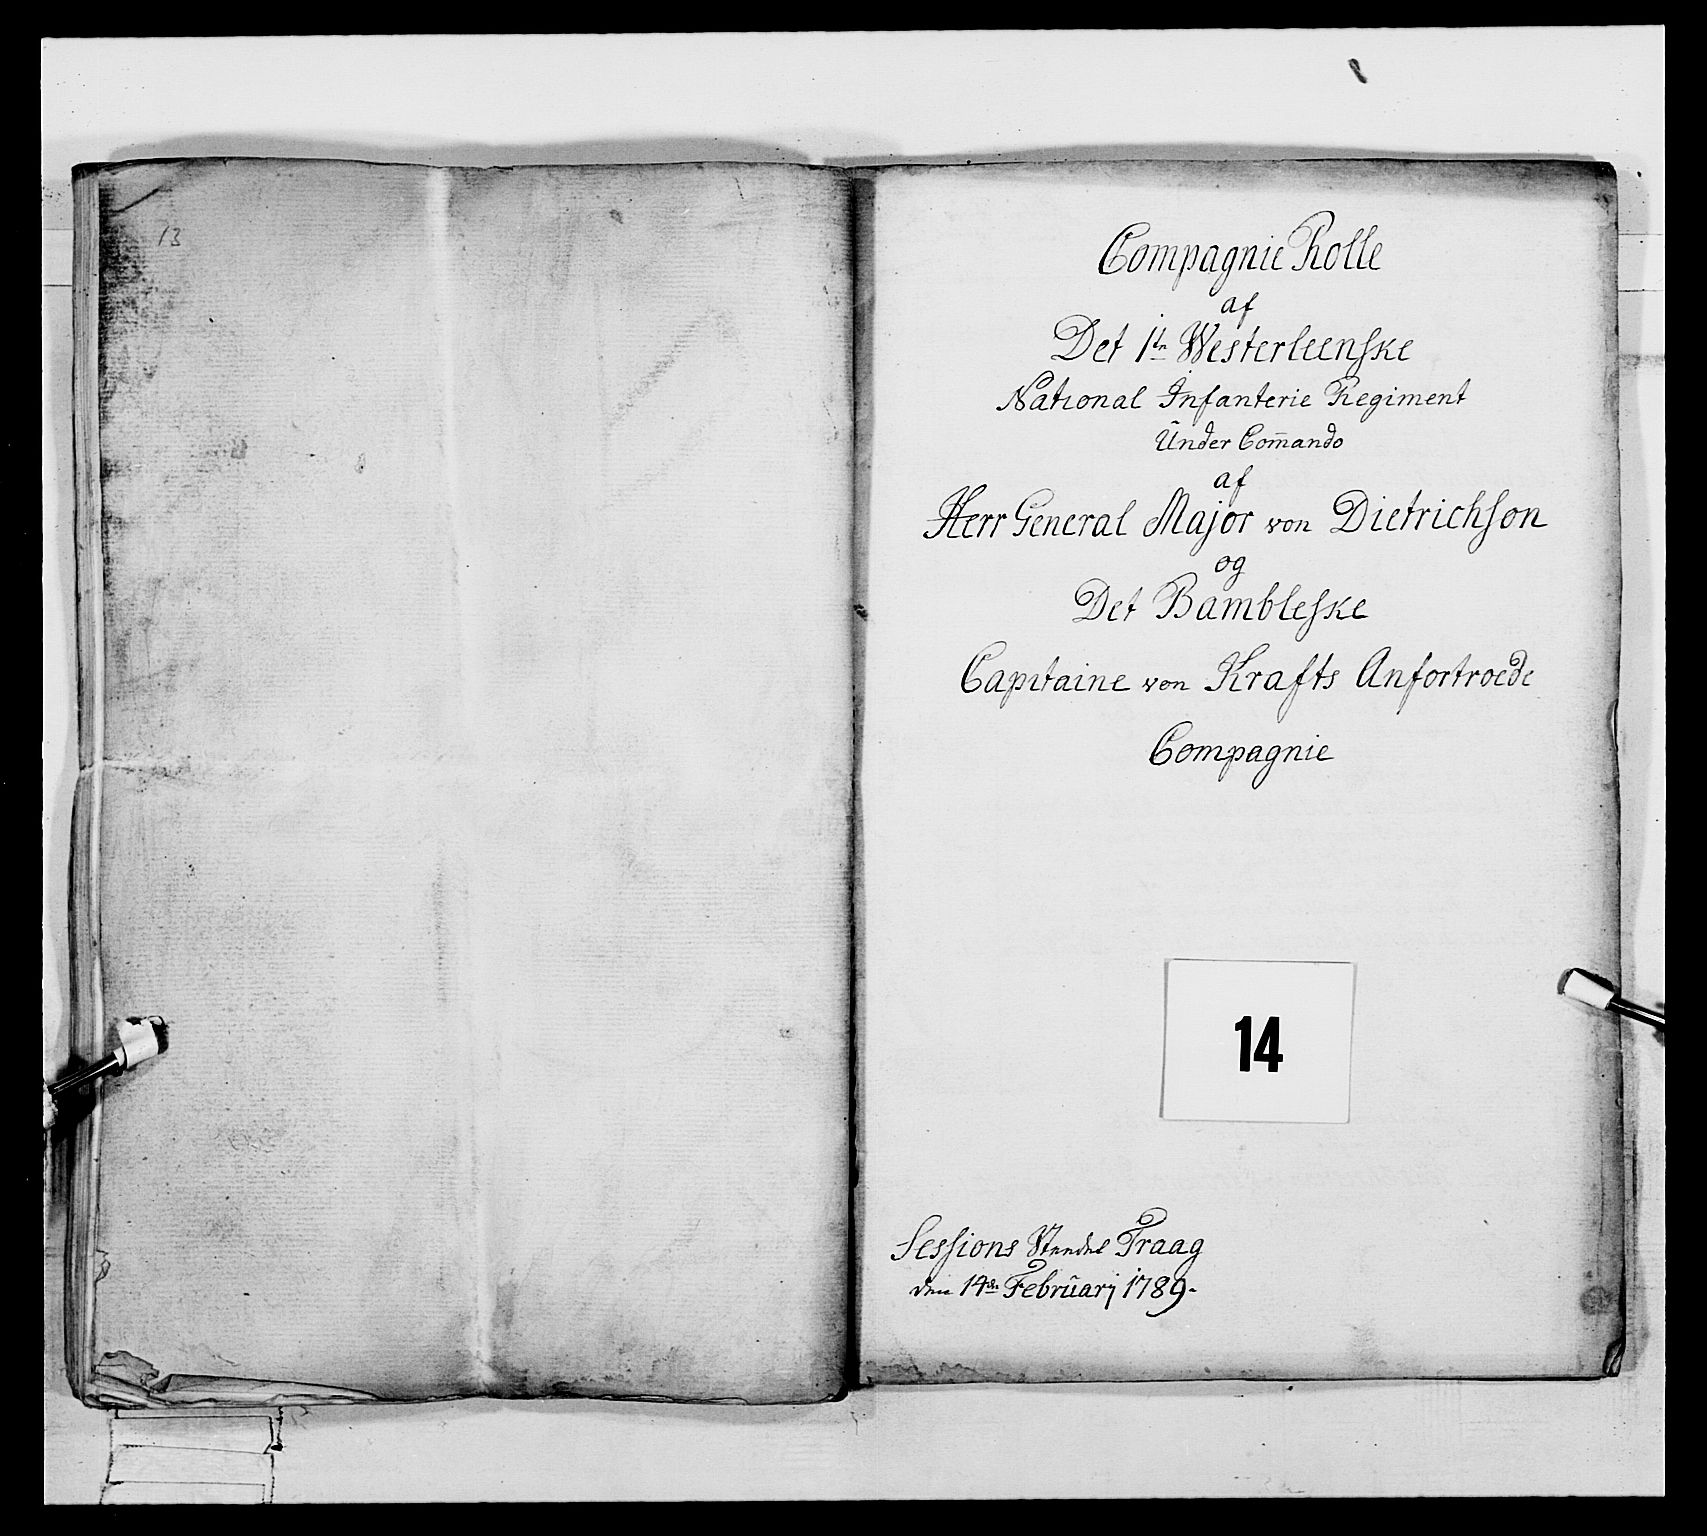 13
Compagnie Rolle
af
Det 1te Westerleenske
National Infanterie Regiment
Ŭnder Com̄ando
af
Herr General Major von Dietrichson
og
Det Bambleske
Capitaine von Krafts Anfortroede
Compagnie
14
Sessions Stendel Traag
den 14de Februarj 1789.